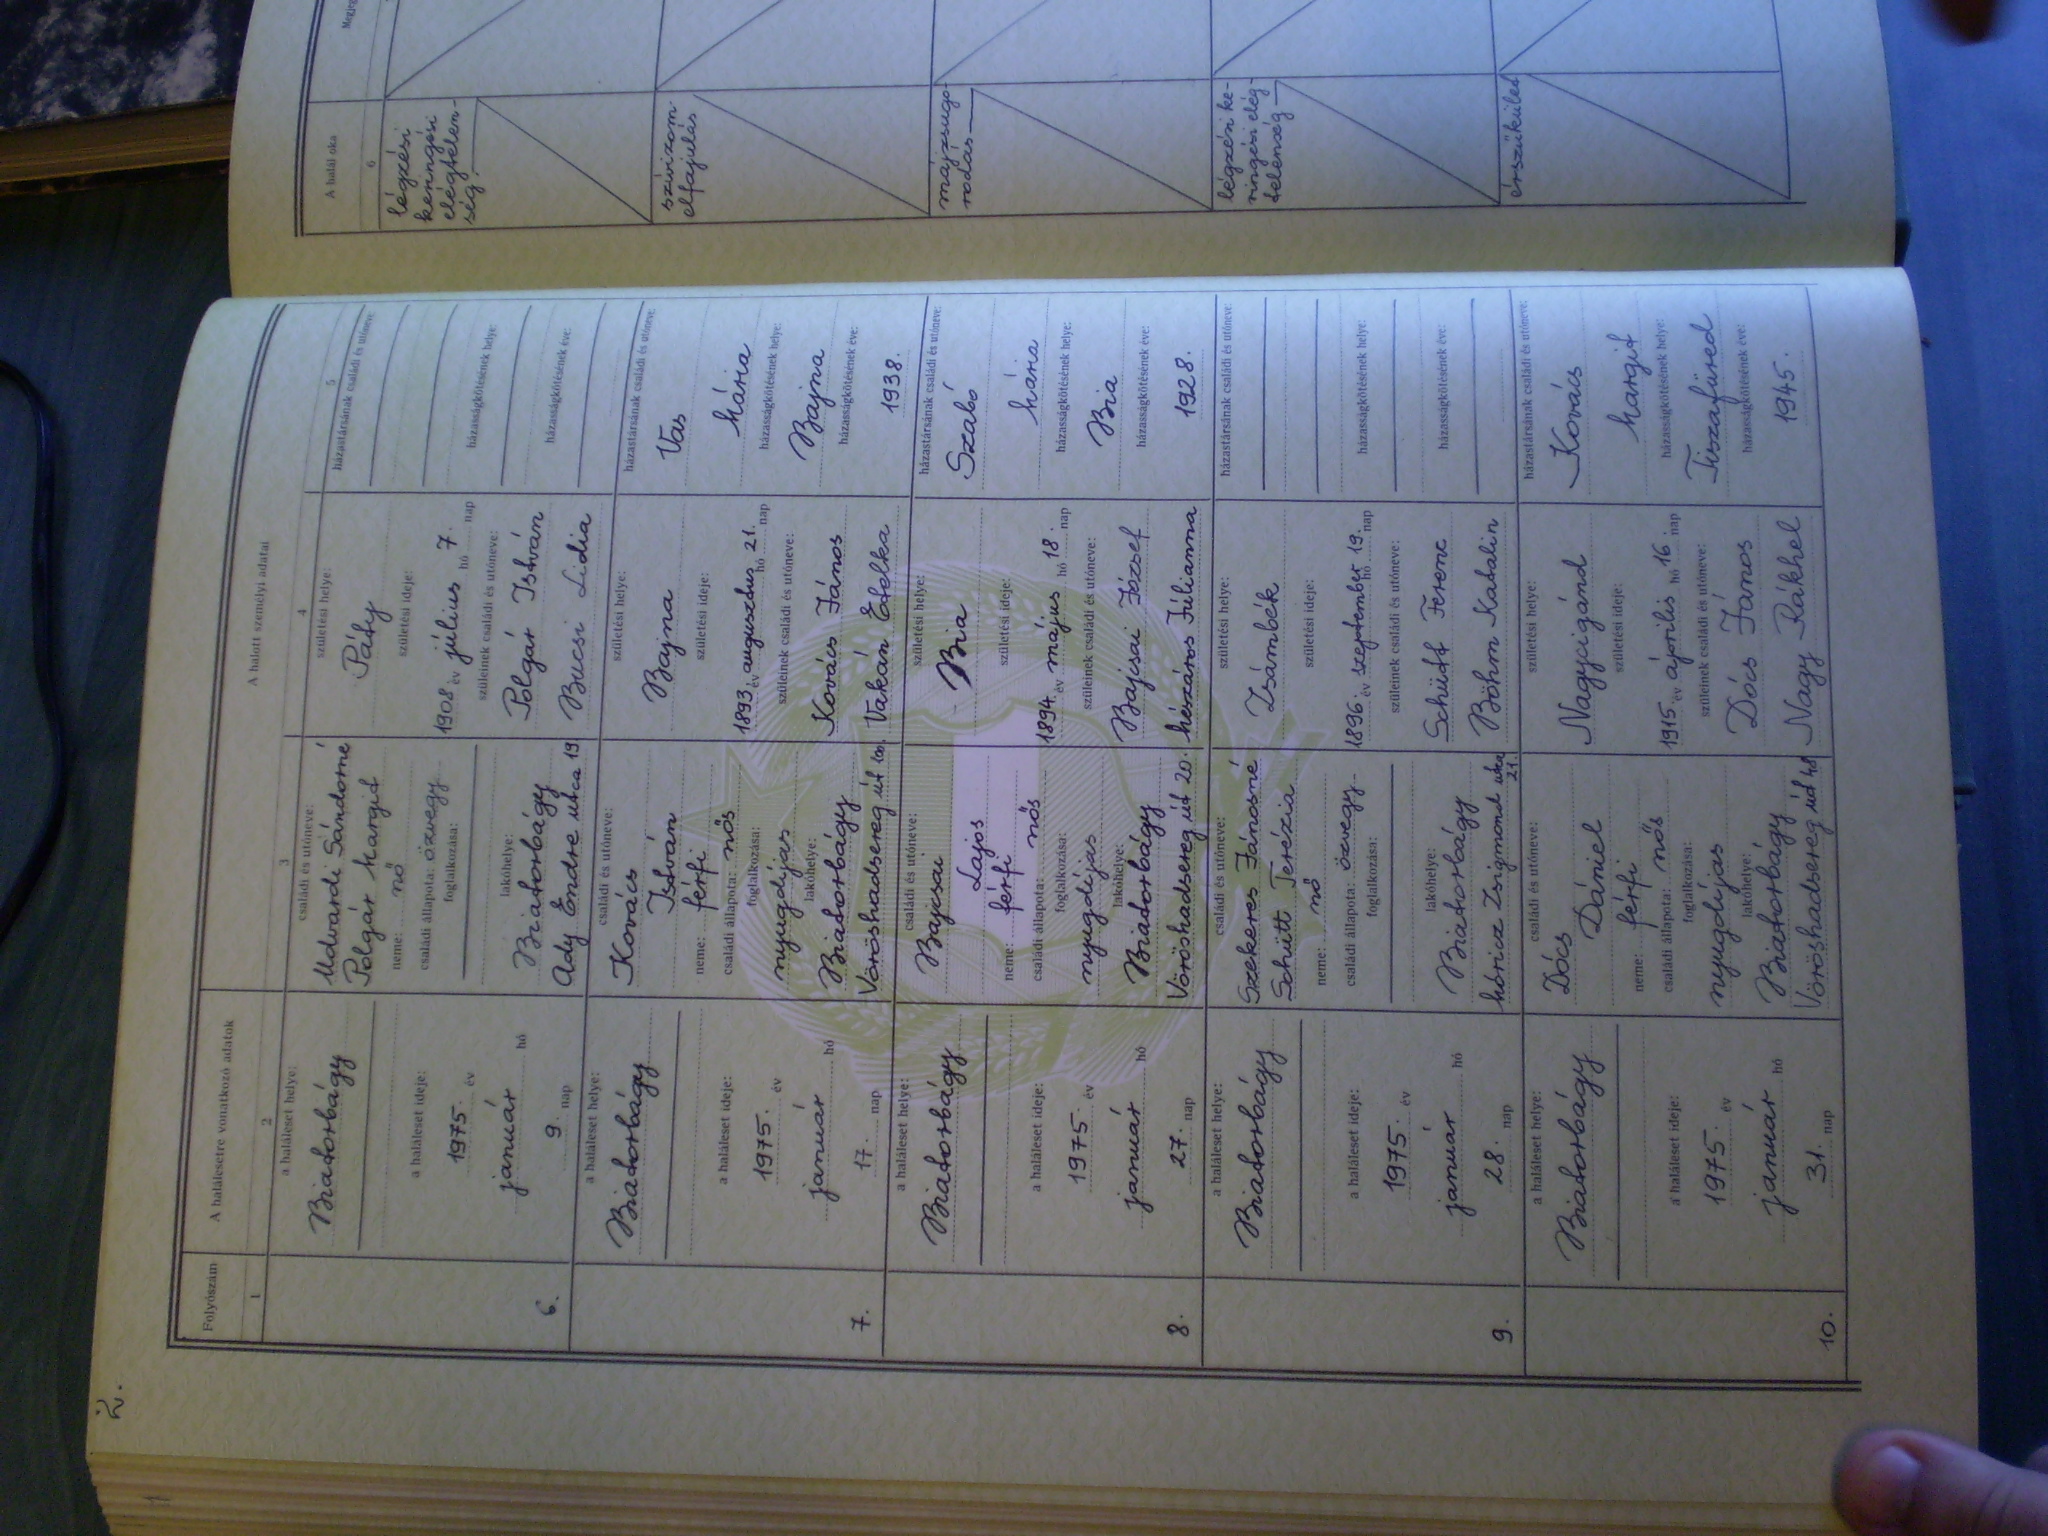 2.
Folyószám
A halálesetre vonatkozó adatok
A halott személyi adatai
1
2
3
4
5
6.
a haláleset helye:
Biatorbágy
a haláleset ideje:
1975. év
január hó
9. nap
családi és utóneve:
Udvardi Sándorné
Polgár Margit
neme: nő
családi állapota: özvegy
foglalkozása:
lakóhelye:
Biatorbágy
Ady Endre utca 19
születési helye:
Páty
születési ideje:
1908. év július hó 7. nap
szüleinek családi és utóneve:
Polgár István
Bucsi Lidia
házastársának családi és utóneve:
házasságkötésének helye:
házasságkötésének éve:
7.
a haláleset helye:
Biatorbágy
a haláleset ideje:
1975. év
január hó
17. nap
családi és utóneve:
Kovács
István
neme: férfi
családi állapota: nős
foglalkozása:
nyugdíjas
lakóhelye:
Biatorbágy
Vöröshadsereg út 100.
születési helye:
Bajna
születési ideje:
1893. év augusztus hó 21. nap
szüleinek családi és utóneve:
Kovács János
Vakán Etelka
házastársának családi és utóneve:
Vas
Mária
házasságkötésének helye:
Bajna
házasságkötésének éve:
1938.
8.
a haláleset helye:
Biatorbágy
a haláleset ideje:
1975. év
január hó
27. nap
családi és utóneve:
Bajcsai
Lajos
neme: férfi
családi állapota: nős
foglalkozása:
nyugdíjas
lakóhelye:
Biatorbágy
Vöröshadsereg út 20.
születési helye:
Bia
születési ideje:
1894. év május hó 18. nap
szüleinek családi és utóneve:
Bajcsai József
Mészáros Julianna
házastársának családi és utóneve:
Szabó
Mária
házasságkötésének helye:
Bia
házasságkötésének éve:
1928.
9.
a haláleset helye:
Biatorbágy
a haláleset ideje:
1975. év
január hó
28. nap
családi és utóneve:
Szekeres Jánosné
Schütt Terézia
neme: nő
családi állapota: özvegy
foglalkozása:
lakóhelye:
Biatorbágy
Móricz Zsigmond utca
21.
születési helye:
Zsámbék
születési ideje:
1896. év szeptember hó 19. nap
szüleinek családi és utóneve:
Schütt Ferenc
Böhm Katalin
házastársának családi és utóneve:
házasságkötésének helye:
házasságkötésének éve:
10.
a haláleset helye:
Biatorbágy
a haláleset ideje:
1975. év
január hó
31. nap
családi és utóneve:
Dócs
Dániel
neme: férfi
családi állapota: nős
foglalkozása:
nyugdíjas
lakóhelye:
Biatorbágy
Vöröshadsereg út 48
születési helye:
Nagycigánd
születési ideje:
1915. év április hó 16. nap
szüleinek családi és utóneve:
Dócs János
Nagy Rákhel
házastársának családi és utóneve:
Kovács
Margit
házasságkötésének helye:
Tiszafüred
házasságkötésének éve:
1945.
A halál oka
6
légzési
keringési
elégtelen-
ség
szívizom-
elfajulás
májzsugo-
rodás
légzési ke-
ringési elég-
telenség
érszűkület